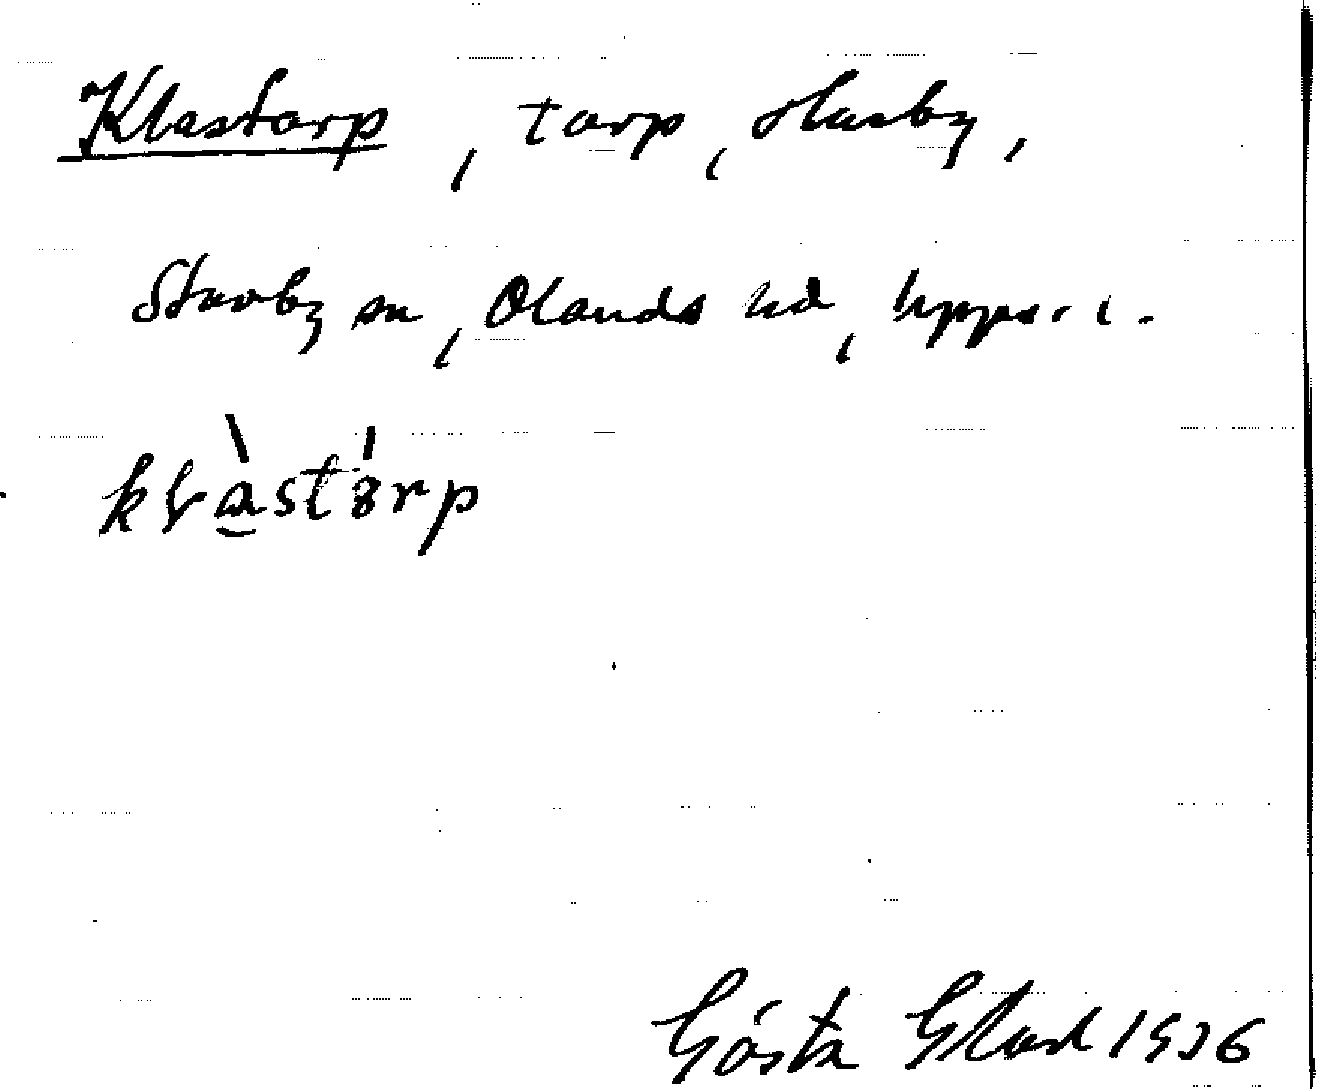 Klastorp, torp, Husby,
Stavby sn, Olands hd, Upps. l.
klàstórp
Gösta Glad 1936